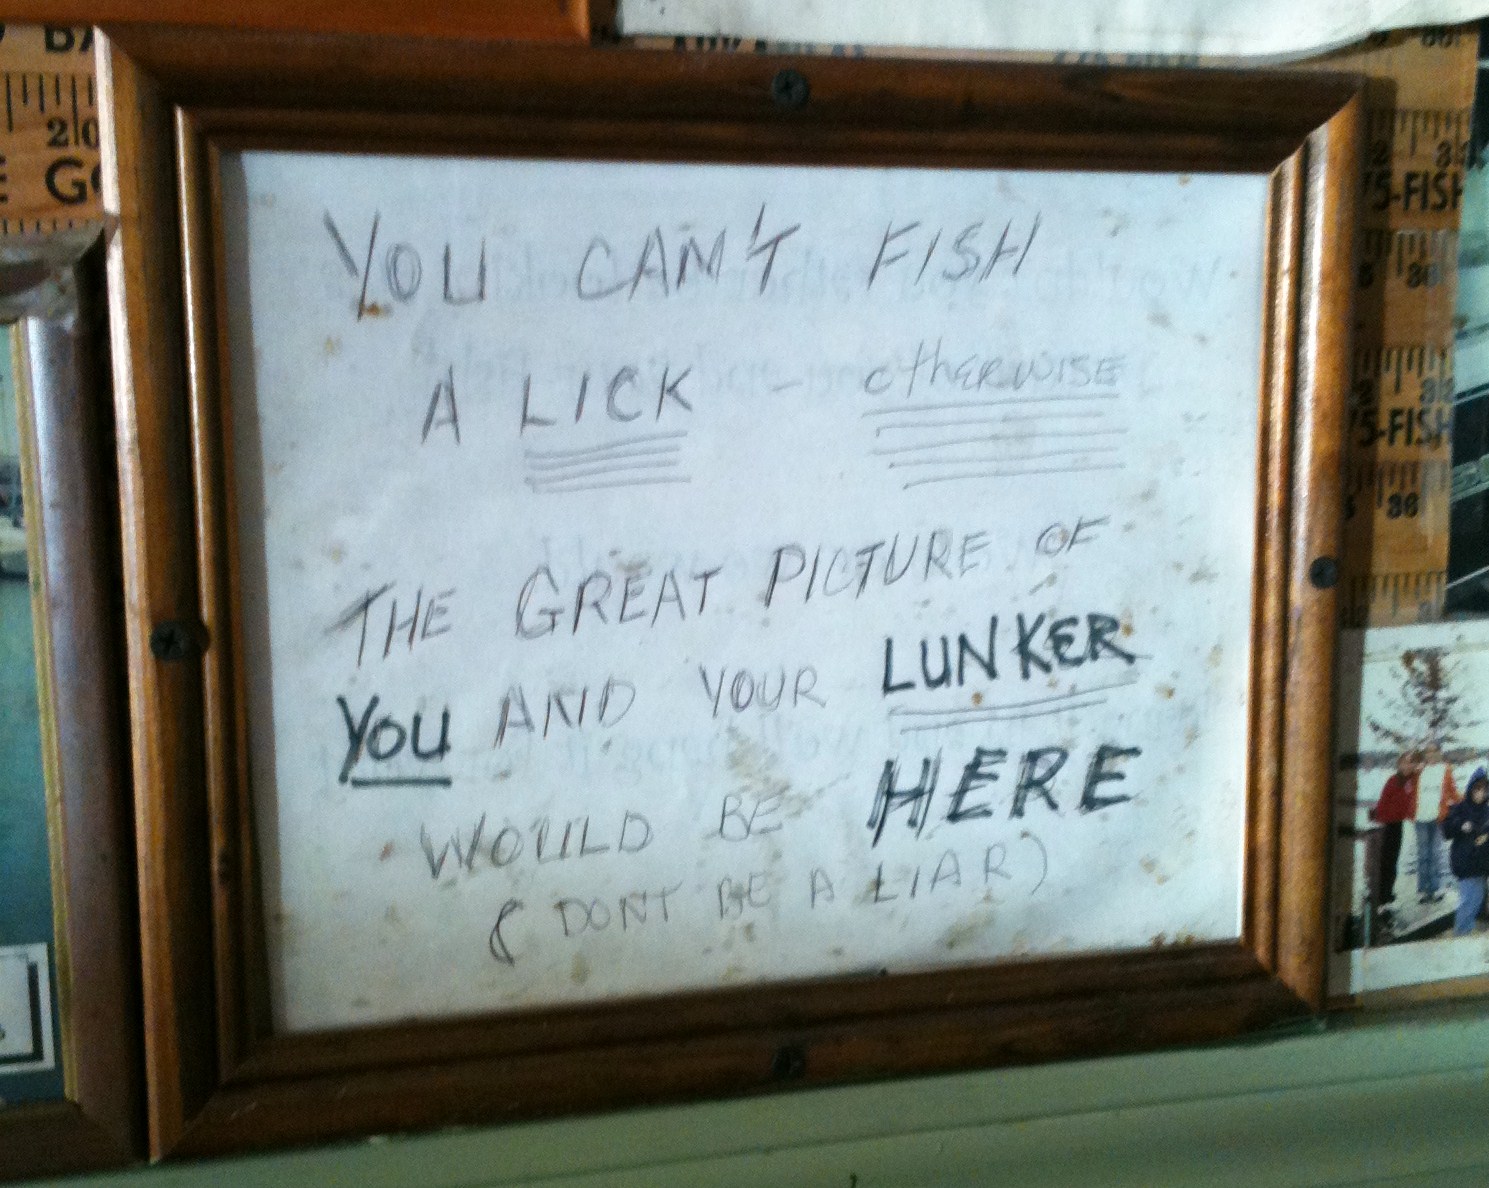 YOU CAN'T FISH
A LICK - otherwise
THE GREAT PICTURE OF
YOU AND YOUR LUNKER
WOULD BE HERE
(DONT BE A LIAR)
20
5-FISH
36
5-FISH
36